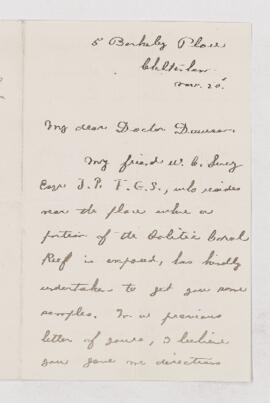 5 Berkeley Place
Cheltenham
Nov. 20.
My dear Doctor Dawson.
My friend W. C. Lucy
Esqr J. P. F. G. S., who resides
near the place where a
portion of the Oolitic Coral
Reef is exposed, has kindly
undertaken to get you some
samples. In a previous
letter of yours, I believe
you gave me directions